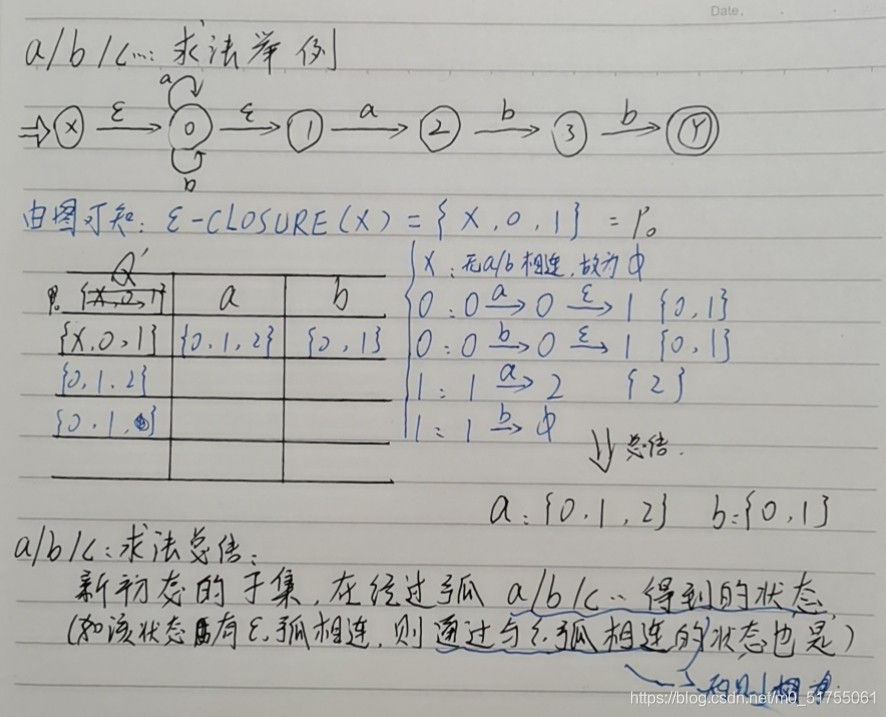 Date.
a/b/c…: 求法举例
a
⇒ X ε→ 0 ε→ 1 a→ 2 b→ 3 b→ Y
b
由图可知: ε-CLOSURE(X) = {X, 0, 1} = P₀
Q'
P₀ {X, 0, 1} a b
{X, 0, 1} {0, 1, 2} {0, 1}
{0, 1, 2}
{0, 1}
X: 无a/b相连, 故为φ
0: 0 a→ 0 ε→ 1 {0, 1}
0: 0 b→ 0 ε→ 1 {0, 1}
1: 1 a→ 2 {2}
1: 1 b→ φ
⇓ 总结.
a: {0, 1, 2} b: {0, 1}
a/b/c: 求法总结:
新初态的子集, 在经过弧 a/b/c… 得到的状态
(如该状态有ε弧相连, 则通过与ε弧相连的状态也是)
https://blog.csdn.net/m0_51755061